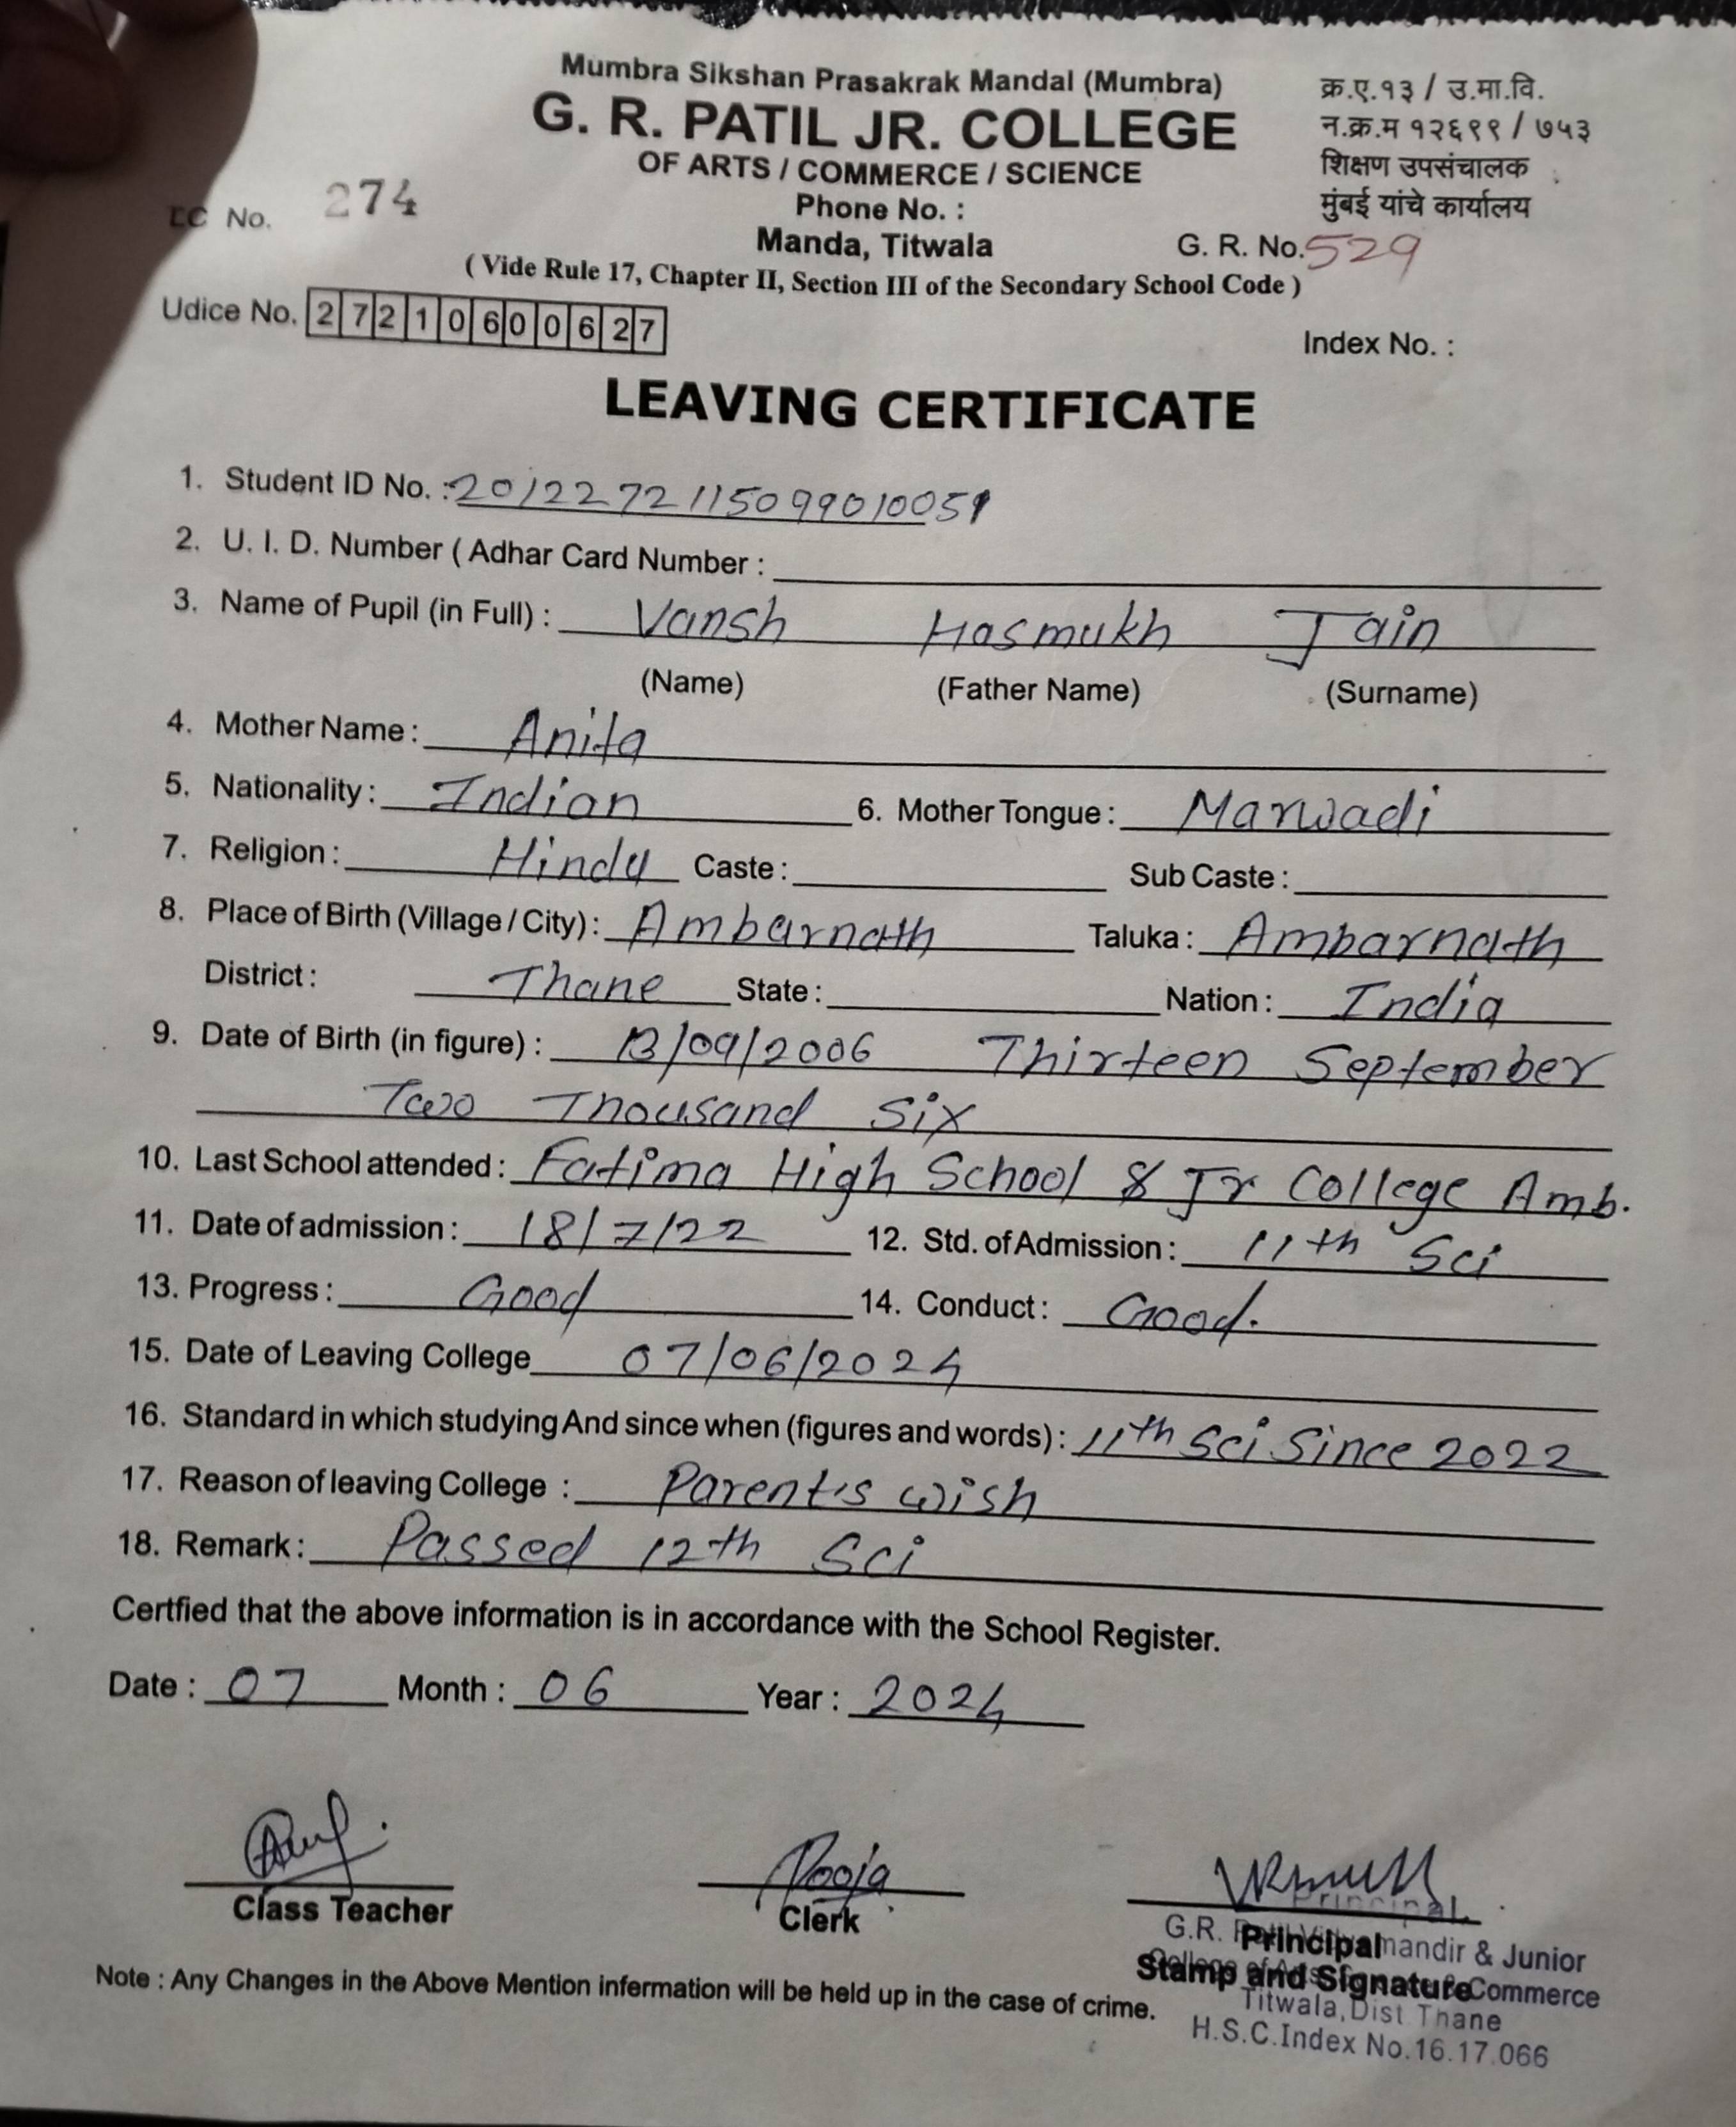 Mumbra Sikshan Prasakrak Mandal (Mumbra)
G. R. PATIL JR. COLLEGE
OF ARTS / COMMERCE / SCIENCE
Phone No. :
Manda, Titwala
क्र.ए.१३ / उ.मा.वि.
न.क्र.म १२६९९ / ७५३
शिक्षण उपसंचालक
मुंबई यांचे कार्यालय
LC No. 274
G. R. No. 529
( Vide Rule 17, Chapter II, Section III of the Secondary School Code )
Udice No. 27210600627
Index No. :
LEAVING CERTIFICATE
1. Student ID No. : 2012272115099010051
2. U. I. D. Number ( Adhar Card Number :
3. Name of Pupil (in Full) : Vansh Hasmukh Jain
(Name) (Father Name) (Surname)
4. Mother Name : Anita
5. Nationality : Indian 6. Mother Tongue : Marwadi
7. Religion : Hindu Caste : Sub Caste :
8. Place of Birth (Village / City) : Ambarnath Taluka : Ambarnath
District : Thane State : Nation : India
9. Date of Birth (in figure) : 13/09/2006 Thirteen September
Two Thousand Six
10. Last School attended : Fatima High School & Jr College Amb.
11. Date of admission : 18/7/22 12. Std. of Admission : 11th Sci
13. Progress : Good 14. Conduct : Good.
15. Date of Leaving College 07/06/2024
16. Standard in which studying And since when (figures and words) : 11th Sci Since 2022
17. Reason of leaving College : Parent's wish
18. Remark : Passed 12th Sci
Certfied that the above information is in accordance with the School Register.
Date : 07 Month : 06 Year : 2024
Class Teacher
Pooja
Clerk
Principal
G.R. Patil mandir & Junior
Principal
College of Commerce
Stamp and Signature
Titwala, Dist Thane
H.S.C.Index No.16.17.066
Note : Any Changes in the Above Mention information will be held up in the case of crime.